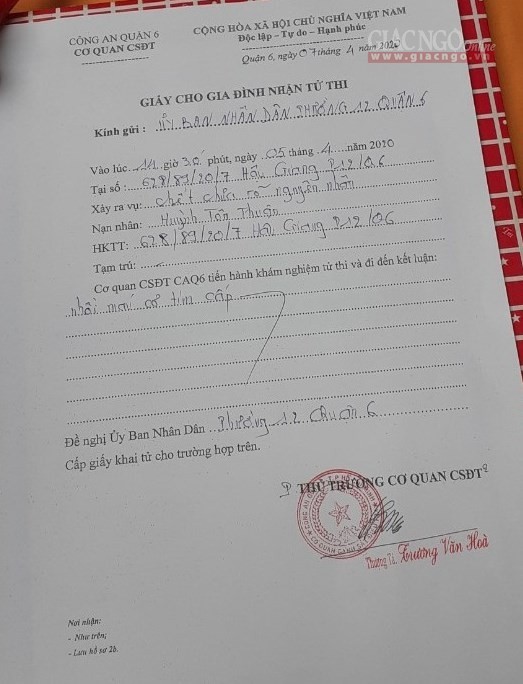 GIÁC NGỘ online
www.giacngo.vn
CÔNG AN QUẬN 6
CƠ QUAN CSĐT
CỘNG HÒA XÃ HỘI CHỦ NGHĨA VIỆT NAM
Độc lập - Tự do - Hạnh phúc
Quận 6, ngày 07 tháng 4 năm 2020
GIẤY CHO GIA ĐÌNH NHẬN TỬ THI
Kính gửi : ỦY BAN NHÂN DÂN PHƯỜNG 12 QUẬN 6
Vào lúc 11 giờ 30 phút, ngày 05 tháng 4 năm 2010
Tại số : 628/89/20/7 Hậu Giang P12/Q6
Xảy ra vụ: chết chưa rõ nguyên nhân
Nạn nhân: Huỳnh Tấn Thuận
HKTT: 628/89/20/7 Hậu Giang P12/Q6
Tạm trú:
Cơ quan CSĐT CAQ6 tiến hành khám nghiệm tử thi và đi đến kết luận:
nhồi máu cơ tim cấp
Đề nghị Ủy Ban Nhân Dân Phường 12 Quận 6
Cấp giấy khai tử cho trường hợp trên.
THỦ TRƯỞNG CƠ QUAN CSĐT
Thượng Tá. Trương Văn Hoà
Nơi nhận:
- Như trên;
- Lưu hồ sơ 2b.